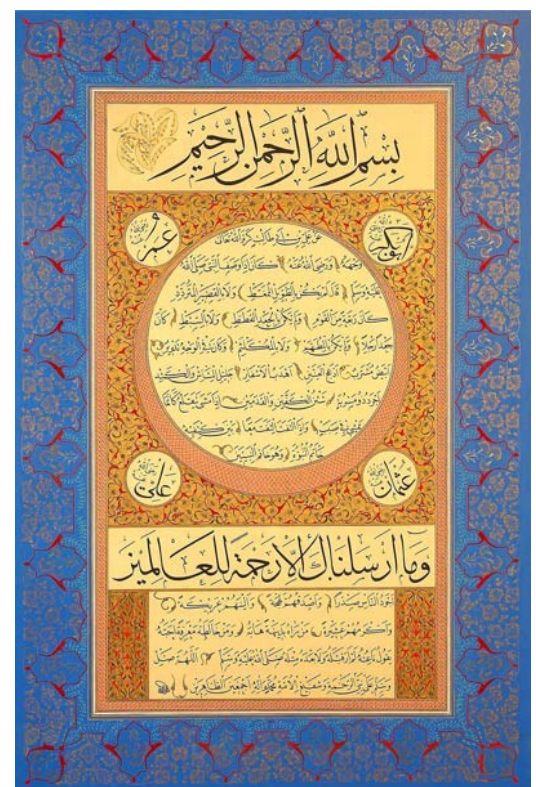 بِسْمِ اللّٰهِ الرَّحْمٰنِ الرَّحِيمِ
ابوبكر
عمر
عن علي بن ابي طالب كرم الله تعالى
وجهه ورضي الله عنه كان اذا وصف النبي صلى الله
عليه وسلم قال لم يكن بالطويل الممغط ولا بالقصير المتردد
كان ربعة من القوم ولم يكن بالجعد القطط ولا بالسبط كان
جعدا رجلا ولم يكن بالمطهم ولا بالمكلثم وكان في الوجه تدوير
ابيض مشرب ادعج العينين اهدب الاشفار جليل المشاش والكتد
اجرد ذو مسربة شثن الكفين والقدمين اذا مشى تقلع كانما
يمشي في صبب واذا التفت التفت معا بين كتفيه
خاتم النبوة وهو خاتم النبيين
عثمان
علي
وما ارسلناك الا رحمة للعالمين
اجود الناس صدرا واصدقهم لهجة والينهم عريكة
واكرمهم عشيرة من رآه بديهة هابه ومن خالطه معرفة احبه
يقول ناعته لم ار قبله ولا بعده مثله صلى الله عليه وسلم اللهم صل
وسلم على نبي الرحمة وشفيع الامة محمد وآله اجمعين الطاهرين